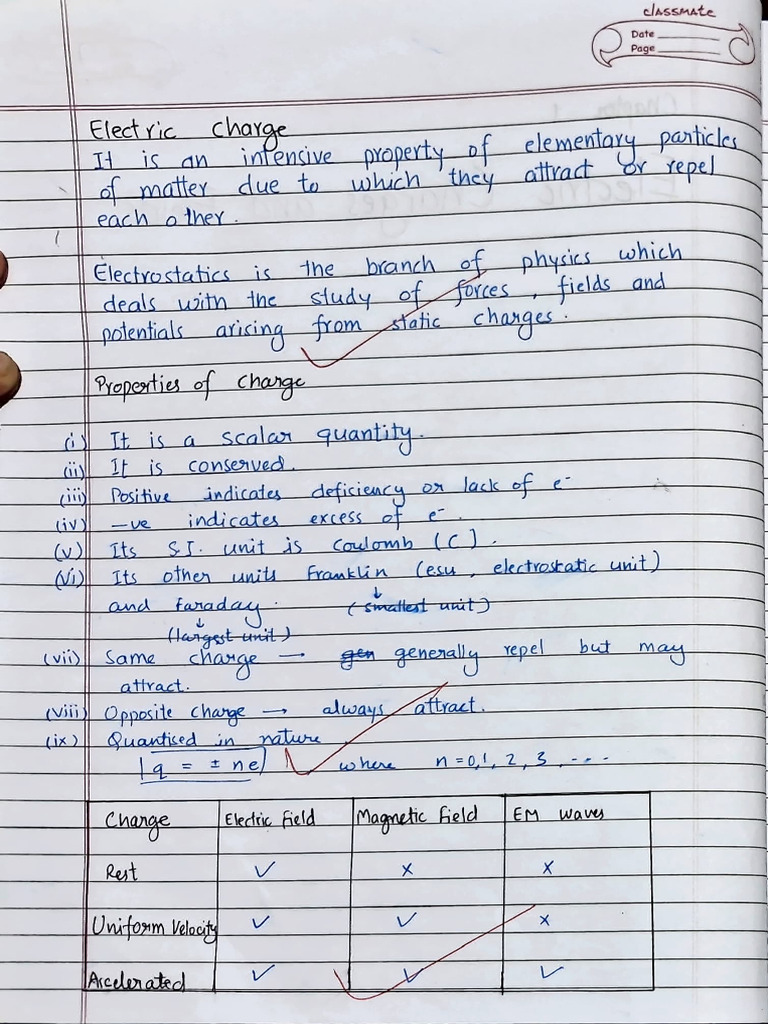 classmate
Date
Page
Electric Charge
It is an intensive property of elementary particles
of matter due to which they attract or repel
each other.
Electrostatics is the branch of physics which
deals with the study of forces, fields and
potentials arising from static charges.
Properties of charge
(i) It is a scalar quantity.
(ii) It is conserved.
(iii) Positive indicates deficiency or lack of e⁻
(iv) -ve indicates excess of e⁻.
(v) Its S.I. unit is Coulomb (C).
(vi) Its other units Franklin (esu, electrostatic unit)
and faraday. ↓ (smallest unit)
↓ (largest unit)
(vii) Same charge → gen generally repel but may
attract.
(viii) Opposite charge → always attract.
(ix) Quantised in nature
|q = ± ne| where n = 0, 1, 2, 3, ----
Charge Electric field Magnetic field EM waves
Rest ✓ x x
Uniform Velocity ✓ ✓ x
Accelerated ✓ ✓ ✓